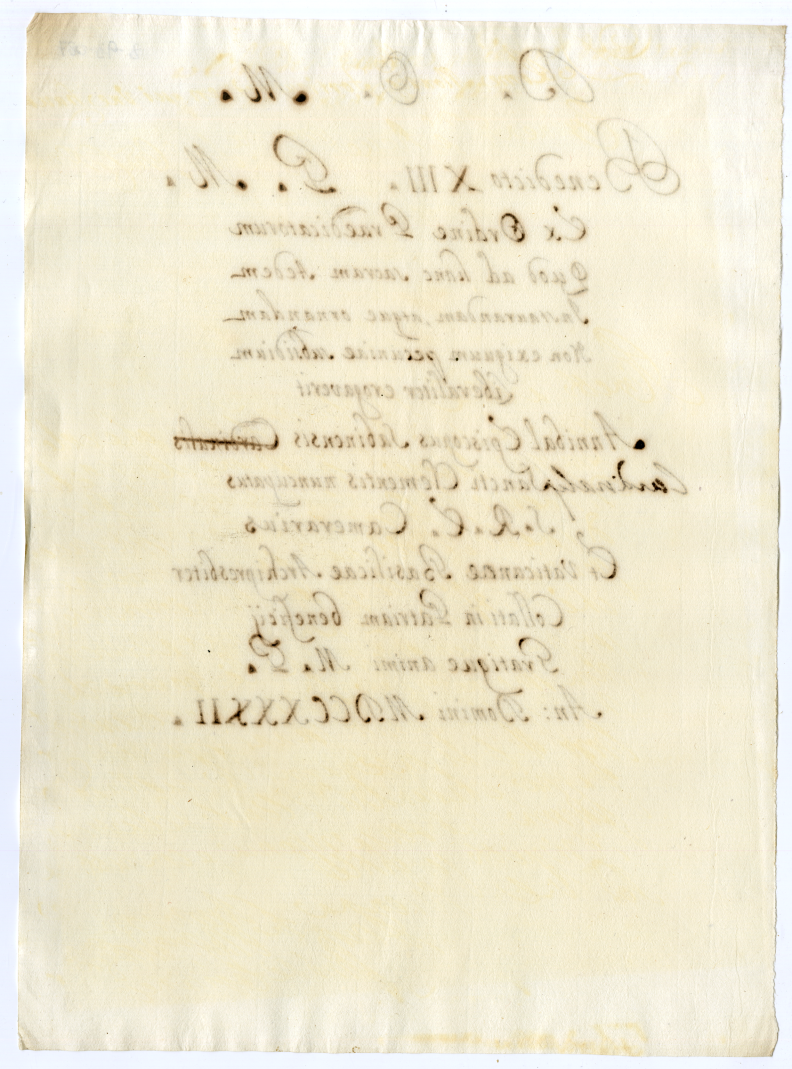 D. O. M.
Benedicto XIII. P. M.
Ex Ordine Praedicatorum
Quod ad hanc sacram Aedem
Instaurandam, atque ornandam
Non exiguum pecuniae subsidium
Liberaliter erogaverit
Annibal Episcopus Sabinensis Cardinalis
Cardinalis Sancti Clementis nuncupatus
S. R. E. Camerarius
Et Vaticanae Basilicae Archipresbiter
Collati in Patriam beneficij
Gratique animi M. P.
An: Domini MDCCXXXII.